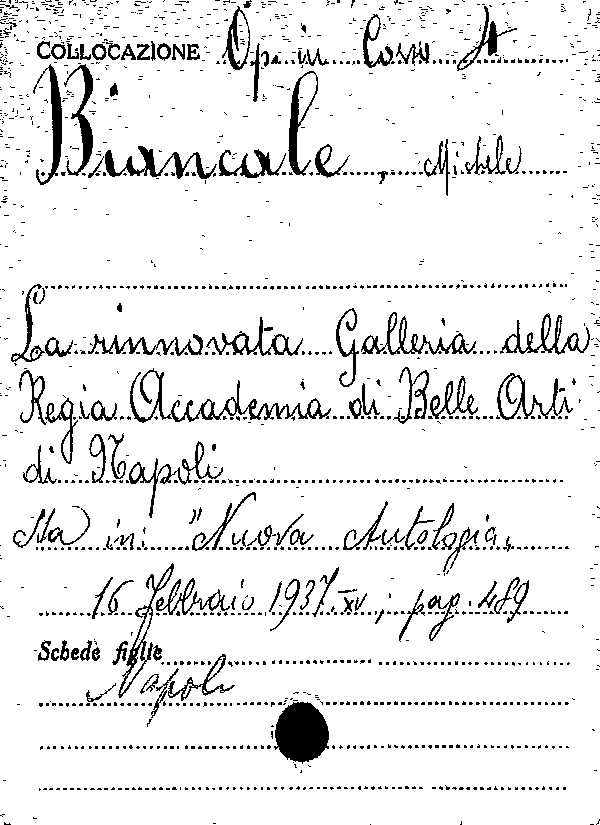 COLLOCAZIONE Op. in Corso
Biancale, Michele
La rinnovata Galleria della
Regia Accademia di Belle Arti
di Napoli
Sta in: "Nuova Antologia„
16 febbraio 1937. XV; pag. 489
Schede figlie
Napoli